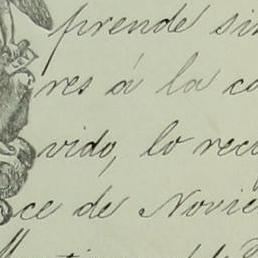 prende sin
res á la co
vido, lo rec
ce de Novie